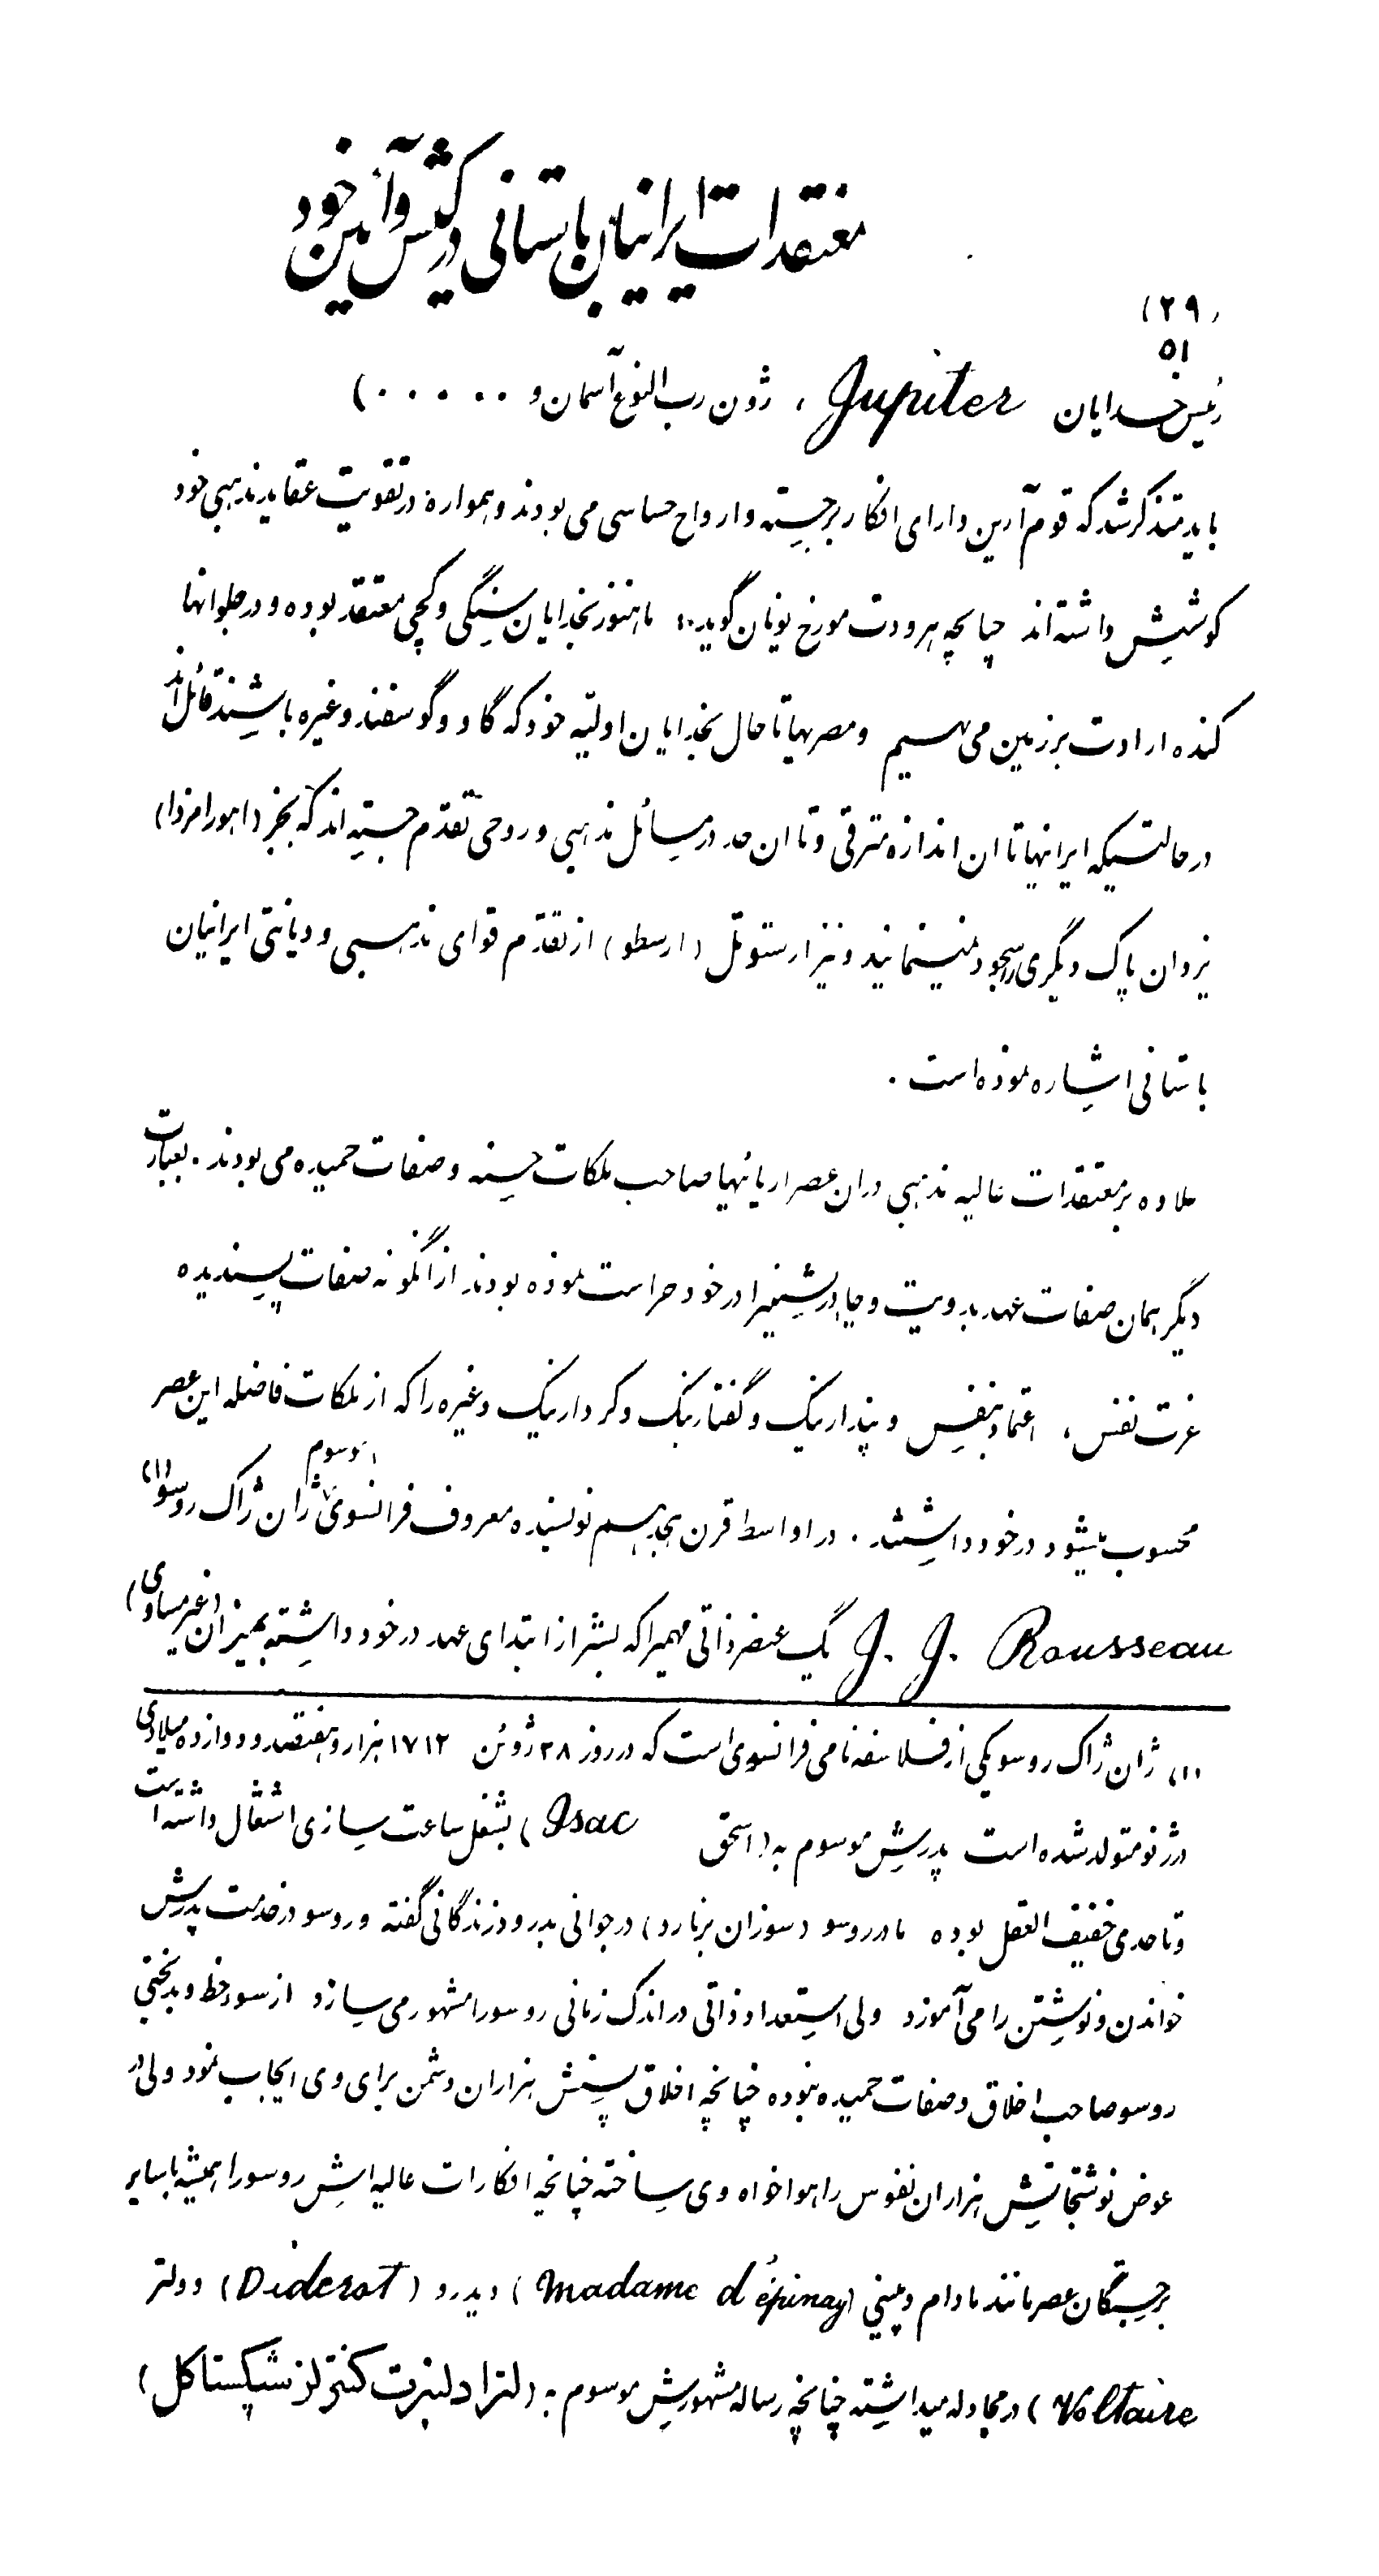 معتقدات ایرانیان باستانی در کیش و آئین خود
(۲۹)
۵۱
رئیس خدایان Jupiter ، ژون رب النوع آسمان و . . . . . . )
باید متذکر شد که قوم آرین دارای افکار برجسته و ارواح حساسی می بودند و همواره در تقویت عقاید مذهبی خود
کوشیش داشته اند چنانچه هرودت مورخ یونان گوید :: ما هنوز بخدایان سنگی و گچی معتقد بوده و در جلو انها
کننده ارادت بر زمین می نهیم و مصریها تا حال بخدایان اولیّه خود که گاو و گوسفند و غیره باشند قائل اند
در حالتیکه ایرانیها تا ان اندازه مترقی و تا ان حد در مسائل مذهبی و روحی تقدّم جسته اند که بجز (اهورامزدا)
یزدان پاک دیگری را سجود نمینمایند و نیز ارستوتل (ارسطو) از تقدّم قوای مذهبی و دیانتی ایرانیان
باستانی اشاره نموده است .
علاوه بر معتقدات عالیه مذهبی در ان عصر اریائیها صاحب ملکات حسنه و صفات حمیده می بودند . بعبارت
دیگر همان صفات عهد بدویت و چادر نشینیرا در خود حراست نموده بودند از انگونه صفات پسندیده
عزت نفس ، اعتماد بنفس و پندار نیک و گفتار نیک و کردار نیک و غیره را که از ملکات فاضله این عصر
محسوب میشود در خود داشتند . در اواسط قرن هجدهم نویسنده معروف فرانسوی موسوم ژان ژاک روسو (۱)
J. J. Rousseau یک عنصر ذاتی مهمیرا که بشر از ابتدای عهد در خود داشته بمیزان (غیر مساوی)
(۱) ژان ژاک روسو یکی از فلاسفه نامی فرانسوی است که در روز ۲۸ ژوئن ۱۷۱۲ هزار و هفتصد و دوازده میلادی
در ژنو متولد شده است پدرش موسوم به (اسحق Isac ) بشغل ساعت سازی اشتغال داشته است
و تا حدی خفیف العقل بوده مادر روسو (سوزان برنارد) در جوانی بدرود زندگانی گفته و روسو در خدمت پدرش
خواندن و نوشتن را می آموزد ولی استعداد ذاتی در اندک زمانی روسو را مشهور می سازد از سوء حظ و بدبختی
روسو صاحب اخلاق و صفات حمیده نبوده چنانچه اخلاق پستش هزاران دشمن برای وی ایجاب نمود ولی در
عوض نوشتجاتش هزاران نفوس را هواخواه وی ساخته چنانچه افکارات عالیه اش روسو را همیشه با سایر
برجستگان عصر مانند مادام دپینی (Madame d'épinay) دیدرو (Diderot) و ولتر
Voltaire) در مجادله میداشته چنانچه رساله مشهورش موسوم به (لترا دلنبرت کنتر لز سپکستاکل)